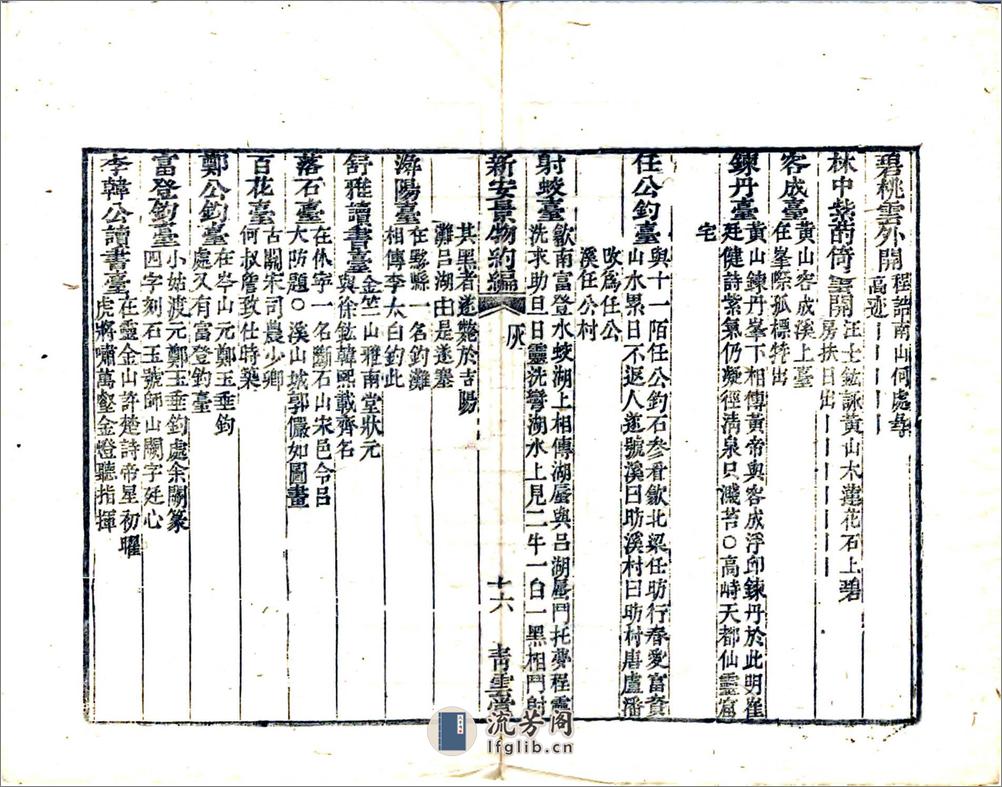 碧桃雲外開 程誥南山何處尋
高迹丨丨丨丨丨
林中紫菂倚雲開 汪士鋐詠黃山木蓮花石上碧
房扶日出丨丨丨丨丨丨丨
容成臺 黃山容成溪上臺
在峯際孤標特出
鍊丹臺 黃山鍊丹峯下相傳黃帝與容成浮邱鍊丹於此明崔
廷健詩紫氣仍凝徑清泉只濺苔○高峙天都仙靈窟
宅
任公釣臺 與十一陌任公釣石參看歙北梁任昉行春愛富資
山水累日不返人遂號溪曰昉溪村曰昉村唐盧潘
改爲任公
溪任公村
射蛟臺 歙南富登水蛟湖上相傳湖蜃與呂湖蜃鬥托夢程靈
洗求助旦日靈洗彎湖水上見二牛一白一黑相鬥射
新安景物約編 灰 十六 青雲堂
其黑者遂斃於吉陽
灘呂湖由是遂塞
潀陽臺 在黟縣一名釣灘
相傳李太白釣此
舒雅讀書臺 金竺山雅南堂狀元
與徐鉉韓熙載齊名
落石臺 在休寧一名斷石山宋邑令呂
大防題○溪山城郭儼如圖畫
百花臺 古關宋司農少卿
何叔詹致仕時築
鄭公釣臺 在岑山元鄭玉垂釣
處久有富登釣臺
富登釣臺 小姑渡元鄭玉垂釣處余闕篆
四字刻石玉號師山闕字廷心
李韓公讀書臺 在靈金山許楚詩帝星初曜
虎將嘯萬壑金燈聽指揮
流芳阁
lfglib.cn